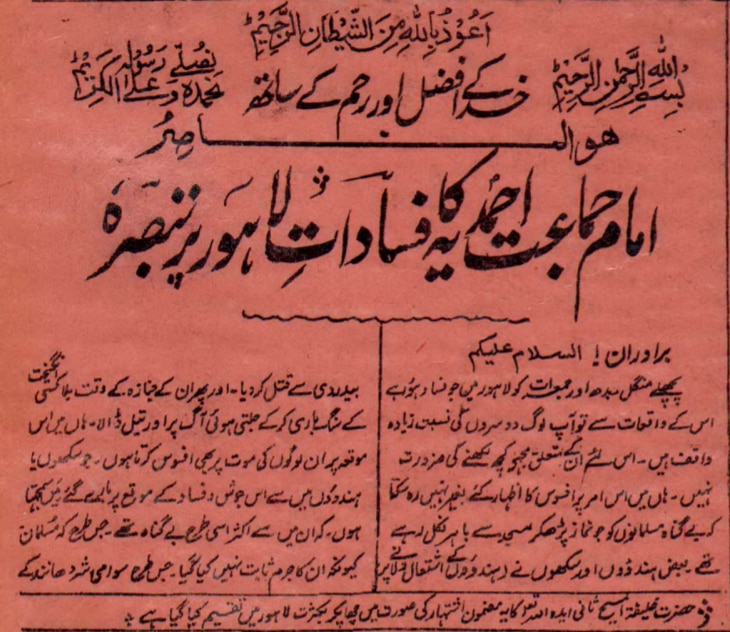 اَعُوْذُ بِاللّٰهِ مِنَ الشَّيْطَانِ الرَّجِيْمِ
بِسْمِ اللّٰهِ الرَّحْمٰنِ الرَّحِيْمِ
نحمدہ و نصلی علیٰ رسولہ الکریم
خدا کے فضل اور رحم کے ساتھ
ھوالنـــاصر
امام جماعت احمدیہ کا فسادات لاہور پر تبصرہ
برادران! السلام علیکم
پچھلے منگل بدھ اور جمعرات کو لاہور میں جو فساد ہوا ہے
اس کے واقعات سے تو آپ لوگ دوسروں کی نسبت زیادہ
واقف ہیں۔ اس لئے ان کے متعلق مجھے کچھ لکھنے کی ضرورت
نہیں۔ ہاں میں اس امر پر افسوس کا اظہار کئے بغیر نہیں رہ سکتا
کہ بے گناہ مسلمانوں کو جو نماز پڑھکر مسجد سے باہر نکل رہے
تھے۔ بعض ہندوؤں اور سکھوں نے دہندوؤں کے اشتعال دلانے پر
بیدردی سے قتل کر دیا۔ اور پھر ان کے جنازہ کے وقت بلا کسی انگیخت
کے سنگ باری کر کے جلتی ہوئی آگ پر اور تیل ڈالا۔ ہاں میں اس
موقعہ پر ان لوگوں کی موت پر بھی افسوس کرتا ہوں۔ جو سکھوں یا
ہندوؤں میں سے اس جوش و فساد کے موقع پر مارے گئے میں سمجھتا
ہوں۔ کہ ان میں سے اکثر اسی طرح بے گناہ تھے۔ جس طرح کہ مسلمان
کیونکہ ان کا جرم ثابت نہیں کیا گیا۔ جس طرح سوامی شردھانند کے
حضرت خلیفۃ المسیح ثانی ایدہ اللہ تعالیٰ کا یہ مضمون اشتہار کی صورت میں چھاپکر بکثرت لاہور میں تقسیم کیا گیا ہے